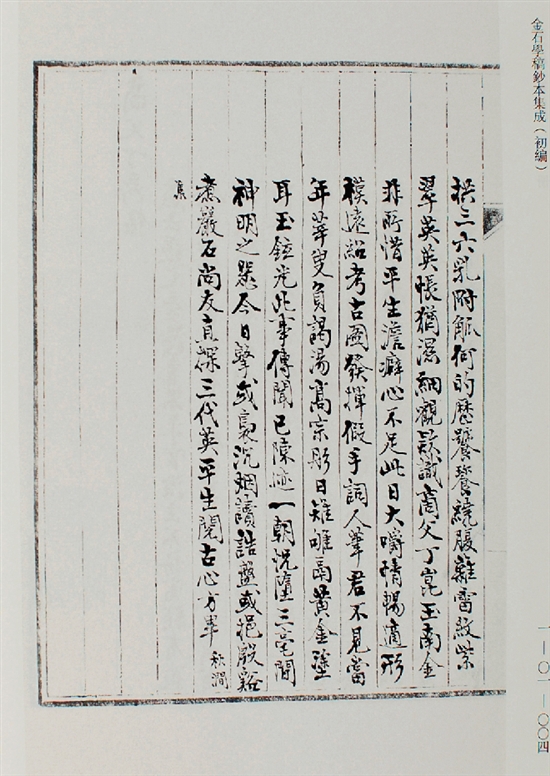 金石學稿鈔本集成（初編）
拱三六乳附觚何的歷饕餮繞腹雜雷紋紫
翠英英悵猶濕細觀款識商父丁崑玉南金
非所惜平生澹癖心不足此日大嚼情暢適形
模遠紹考古圖發揮假手詞人筆君不見當
年莘叟負謁湯高宗肜日雉雊鬲黃金塗
耳玉鉉光此事傳聞已陳迹一朝沉墮三毫間
神明之器今日擎或裛沉烟讀誥盤或挹殷谿
煮巖石尚友直探三代英平生閱古心方畢 秋澗
集
一—〇一—〇〇四